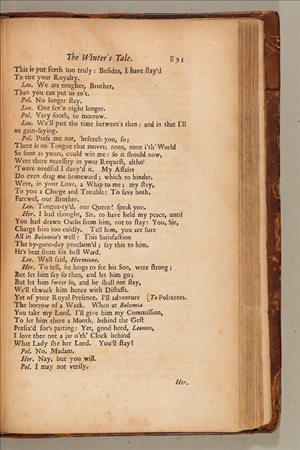 The Winter's Tale. 895
This is put forth too truly: Besides, I ſtay'd
To tire your Royalty.
Leo. We are tougher, Brother,
Than you can put us to't.
Pol. No longer ſtay.
Leo. One ſev'n night longer.
Pol. Very ſooth, to morrow.
Leo. We'll part the time between's then: and in that I'll
no gain-ſaying.
Pol. Preſs me not, 'beſeech you, ſo;
There is no Tongue that moves; none, none i'th' World
So ſoon as yours, could win me: ſo it ſhould now,
Were there neceſſity in your Requeſt, altho'
'Twere needful I deny'd it. My Affairs
Do even drag me homeward; which to hinder,
Were, in your Love, a Whip to me; my ſtay,
To you a Charge and Trouble: To ſave both,
Farewel, our Brother.
Leo. Tongue-ty'd, our Queen? ſpeak you.
Her. I had thought, Sir, to have held my peace, until
You had drawn Oaths from him, not to ſtay: You, Sir,
Charge him too coldly. Tell him, you are ſure
All in Bohemia's well: This Satisfaction
The by-gone-day proclaim'd; ſay this to him,
He's beat from his beſt Ward.
Leo. Well ſaid, Hermione.
Her. To tell, he longs to ſee his Son, were ſtrong;
But let him ſay ſo then, and let him go;
But let him ſwear ſo, and he ſhall not ſtay,
We'll thwack him hence with Diſtaffs.
Yet of your Royal Preſence, I'll adventure [To Polixenes.
The borrow of a Week. When at Bohemia
You take my Lord, I'll give him my Commiſſion,
To let him there a Month, behind the Geſt
Prefix'd for's parting: Yet, good heed, Leontes,
I love thee not a jar o'th' Clock behind
What Lady ſhe her Lord. You'll ſtay?
Pol. No, Madam.
Her. Nay, but you will.
Pol. I may not verily.
Her.